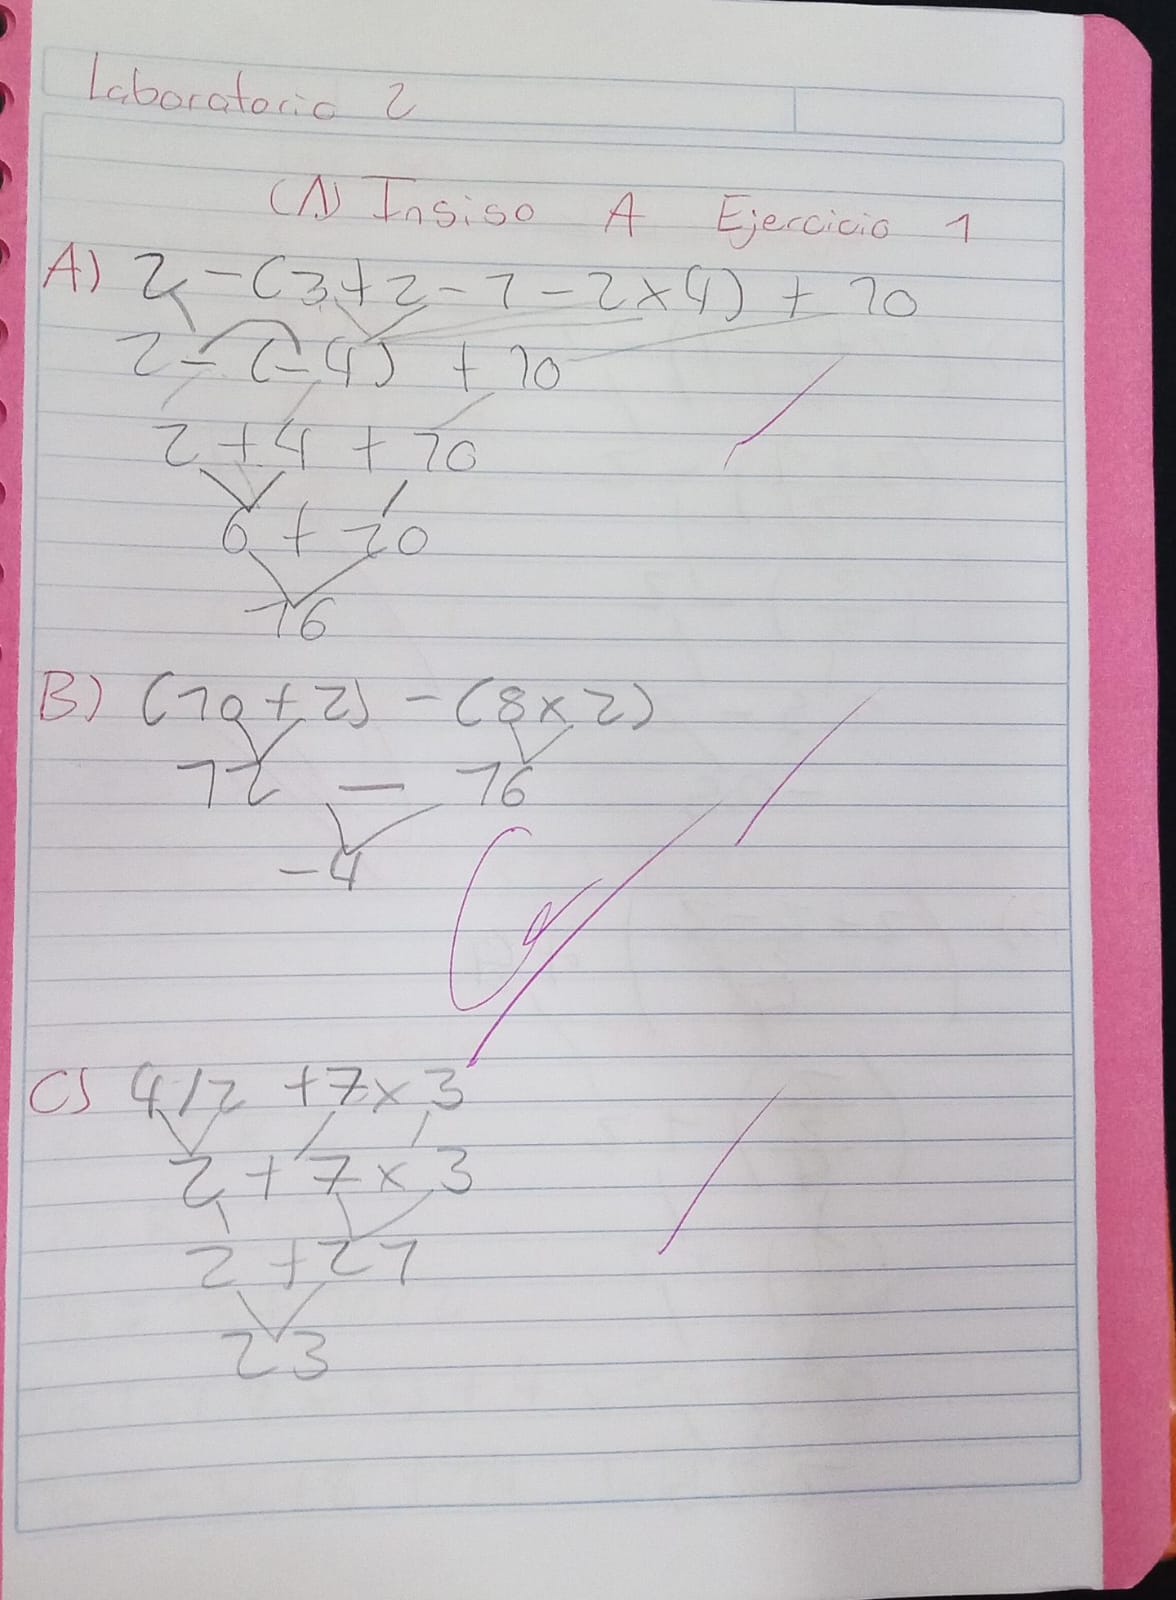 Laboratorio 2
(A) Insiso A Ejercicio 1
A) 2 - (3 + 2 - 1 - 2 x 4) + 10
2 - (-4) + 10
2 + 4 + 10
6 + 10
16
B) (10 + 2) - (8 x 2)
12 - 16
-4
C) 4/2 + 7 x 3
2 + 7 x 3
2 + 21
23